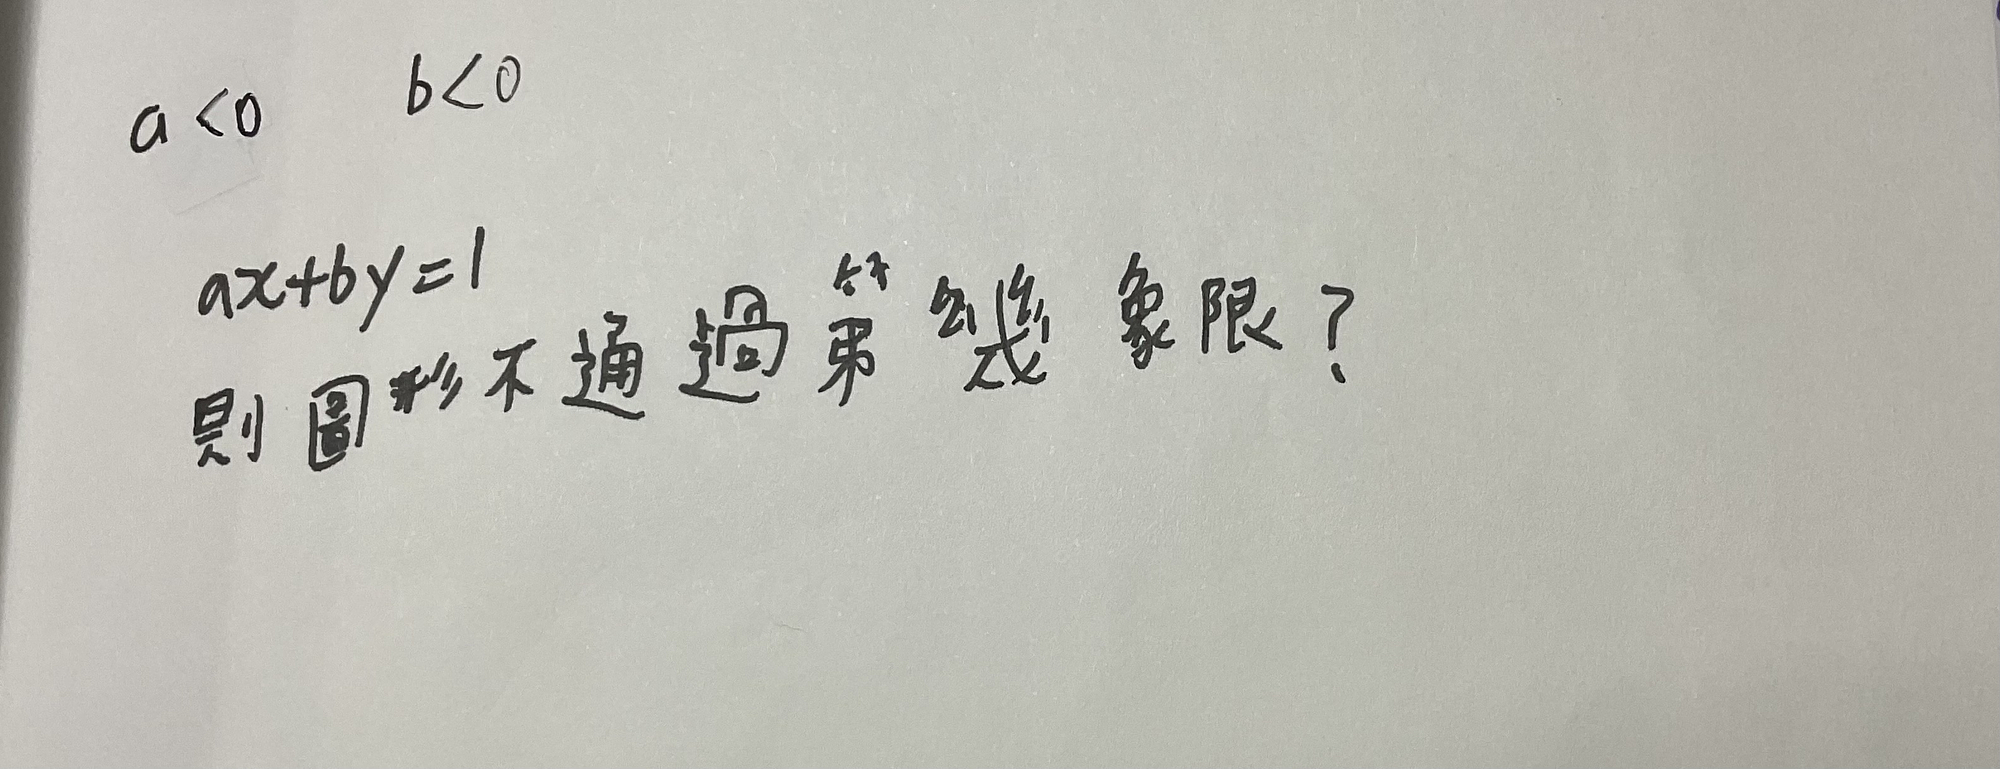 a<0 b<0
ax+by=1
則圖形不通過第幾象限?